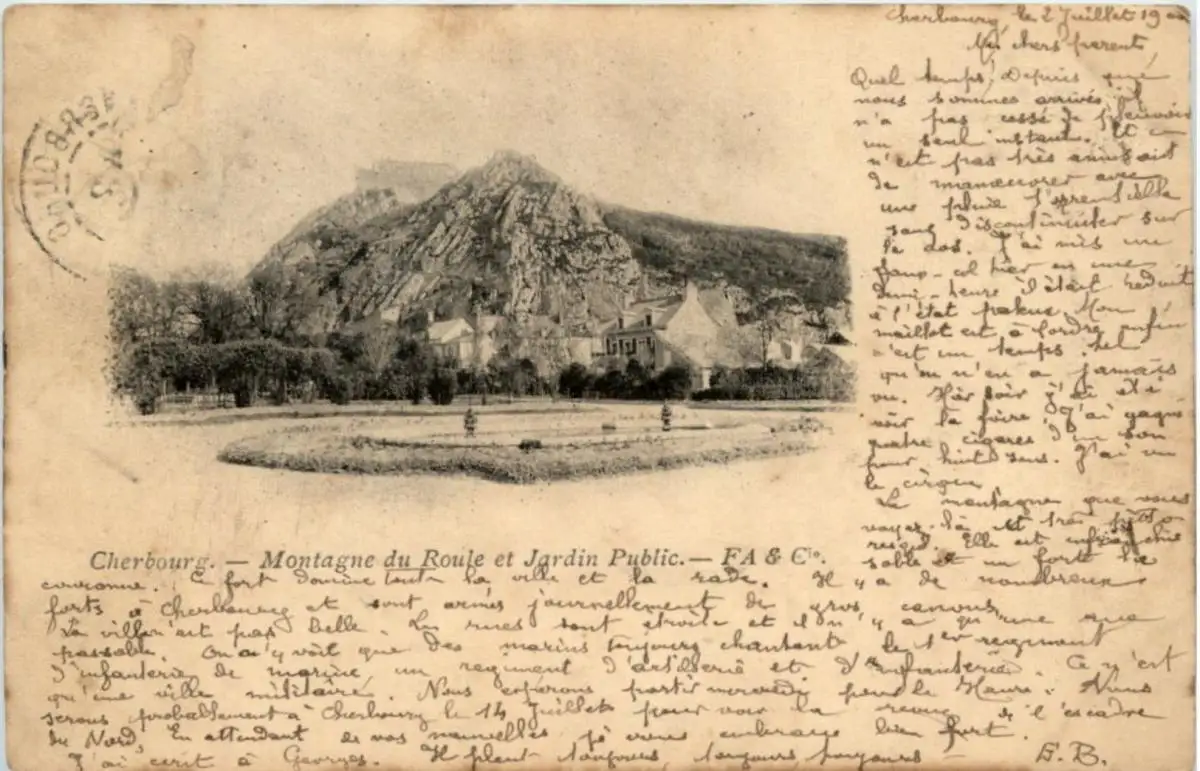 Cherbourg, le 2 Juillet 19
Mes chers parents,
Quel temps! Depuis que
nous sommes arrivés il
n'a pas cessé de pleuvoir
un seul instant. Et ce
n'est pas très amusant
de manœuvrer avec
une pluie torrentielle
sans discontinuer sur
le dos. J'ai mis un
faux-col hier en une
demi-heure il était réduit
à l'état Mon
maillot est à tordre enfin
c'est un temps tel
qu'on n'en a jamais
vu. Hier soir j'ai été
voir la foire J'ai gagné
quatre cigares d'un son
pour huit sous. J'ai vu
le cirque.
La montagne que vous
voyez-là est très
Elle est
et un fort la
couronne. Ce fort domine toute la ville et la rade. Il y a de nombreux
forts à Cherbourg et sont armés journellement de gros canons
La ville n'est pas belle. Les rues sont étroites et il n'y a qu'une que
passable. On n'y voit que des marins toujours chantant le 1er regiment
d'infanterie de marine un regiment d'artillerie et d'infanterie. Ce n'est
qu'une ville militaire. Nous esperons partir mercredi pour le Havre. Nous
serons probablement à Cherbourg le 14 Juillet pour voir la revue de l'escadre
du Nord. En attendant de vos nouvelles je vous embrasse bien fort.
J'ai ecrit à Georges. Il pleut toujours, toujours toujours E. B.
Cherbourg. — Montagne du Roule et Jardin Public. — FA & Cie.